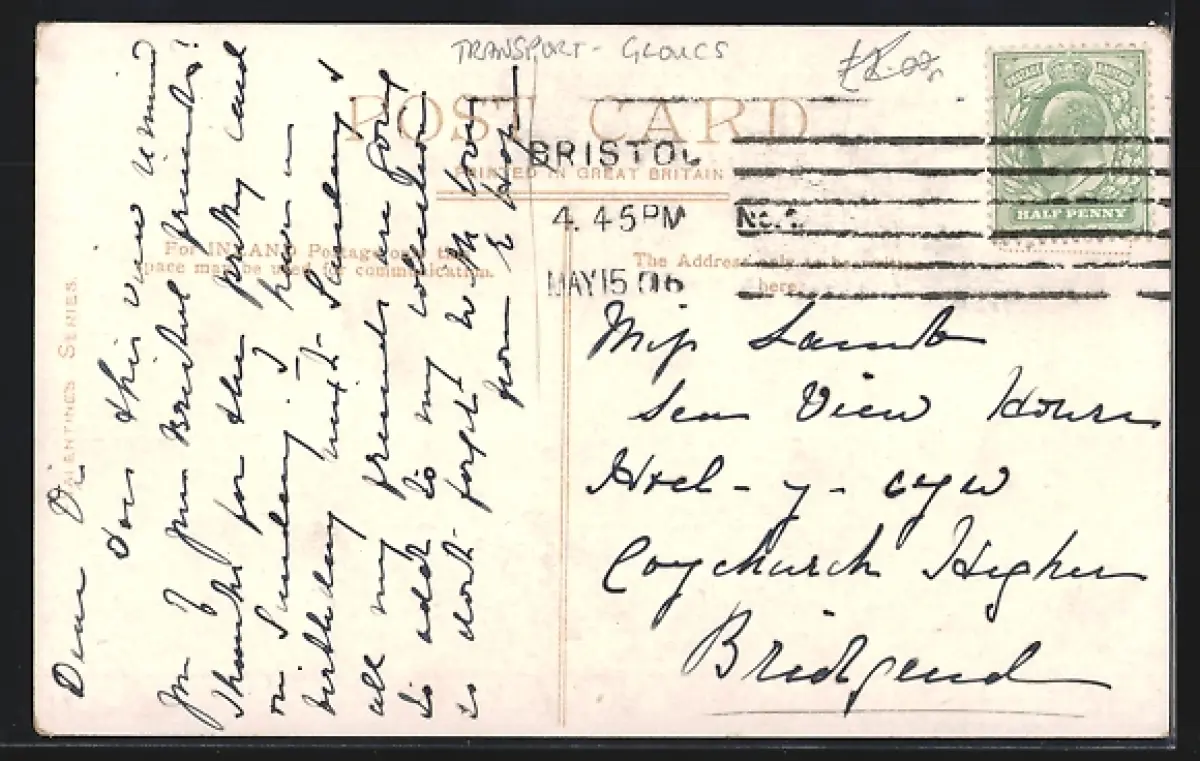 TRANSPORT - GLOUCS
POST CARD
PRINTED IN GREAT BRITAIN
BRISTOL
4.45PM
MAY 15 06
HALF PENNY
For INLAND Postage only this
space may be used for communication.
The Address only to be written
here.
VALENTINES SERIES
Dear Di
Does this view remind
you of your Bristol friends?
Thanks for the pretty card
on Sunday. I hear
birthday next Sunday &
all my friends are going
to add to my collection
so don't forget. With love
from E Hope
Miss Lamb
Sea View House
Heol-y-cyw
Coychurch Higher
Bridgend